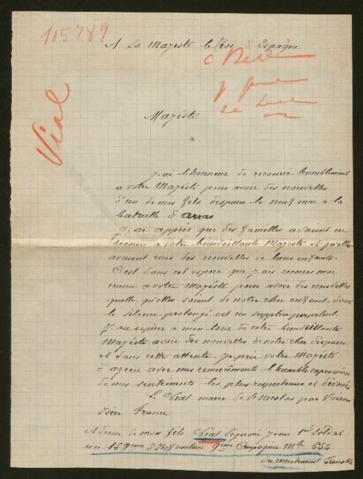 115789
A Sa Majesté le Roi d'Espagne
Vial
Majesté
J'ai l'honneur de recourir humblement
a votre Majesté pour avoir des nouvelles
d'un de mes fils disparu le neuf mai a la
bataille d'Arras
J'ai appris que des familles avaient eu
recours a votre bienveillante Majesté et qu'elles
avaient reçu des nouvelles de leurs enfants.
C'est dans cet espoir que j'ai recours moi
même a votre Majesté pour avoir des nouvelles
quelles qu'elles soient de notre cher enfant dont
le silence prolongé est un supplice perpétuel
J'ose espérer a mon tour de votre bienveillante
Majesté avoir des nouvelles de notre cher disparu
et dans cette attente je prie votre Majesté
d'agréer avec mes remerciements l'humble expression
de mes sentiments les plus respectueux et dévoués
Vial maire de St Nicolas par
Isère France
Adresse de mon fils Vial Jean soldat
au 159eme d'Infanterie Compagnie Mle 654
recrutement Grenoble